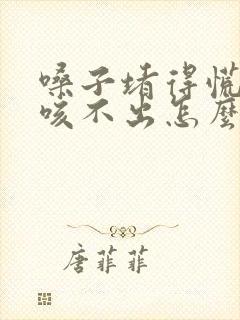 嗓子堵得慌
咳不出怎麼
唐菲菲